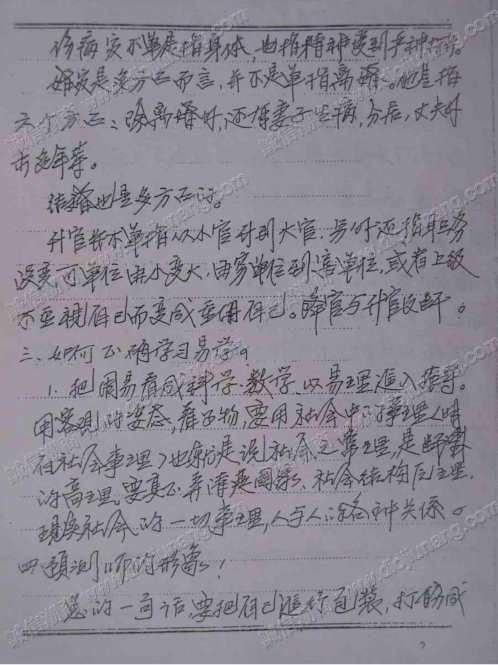 伤病灾不单是指身体,也指精神受到某种
婚灾是多方面而言,并不是单指离婚。他是指
六个方面:除离婚外,还有妻子生病,分居,丈夫外
出多年等。
结婚也是多方面的。
升官并不单指从小官升到大官,另外还指职务
没变,可单位由小变大,由穷单位到富单位,或者上级
不重视自己而变成重用自己。降官与升官反断。
三、如何正确学习易学。
1. 把周易看成科学、数学,以易理进入
用客观的姿态,看事物,要用社会中的事理(
在社会事理)也就是说社会之常理,是断卦
的高理,要真正弄清楚国家、社会结构后理,
现实社会的一切事理,人与人的各种关系。
四、预测师的形象:
总的一句话,要把自己进行包装,打扮成
2